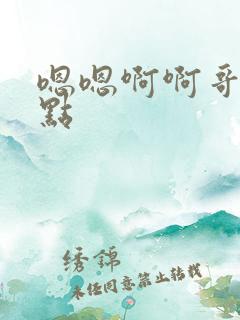 嗯嗯啊啊哥
點
绣锦
未经同意禁止转载